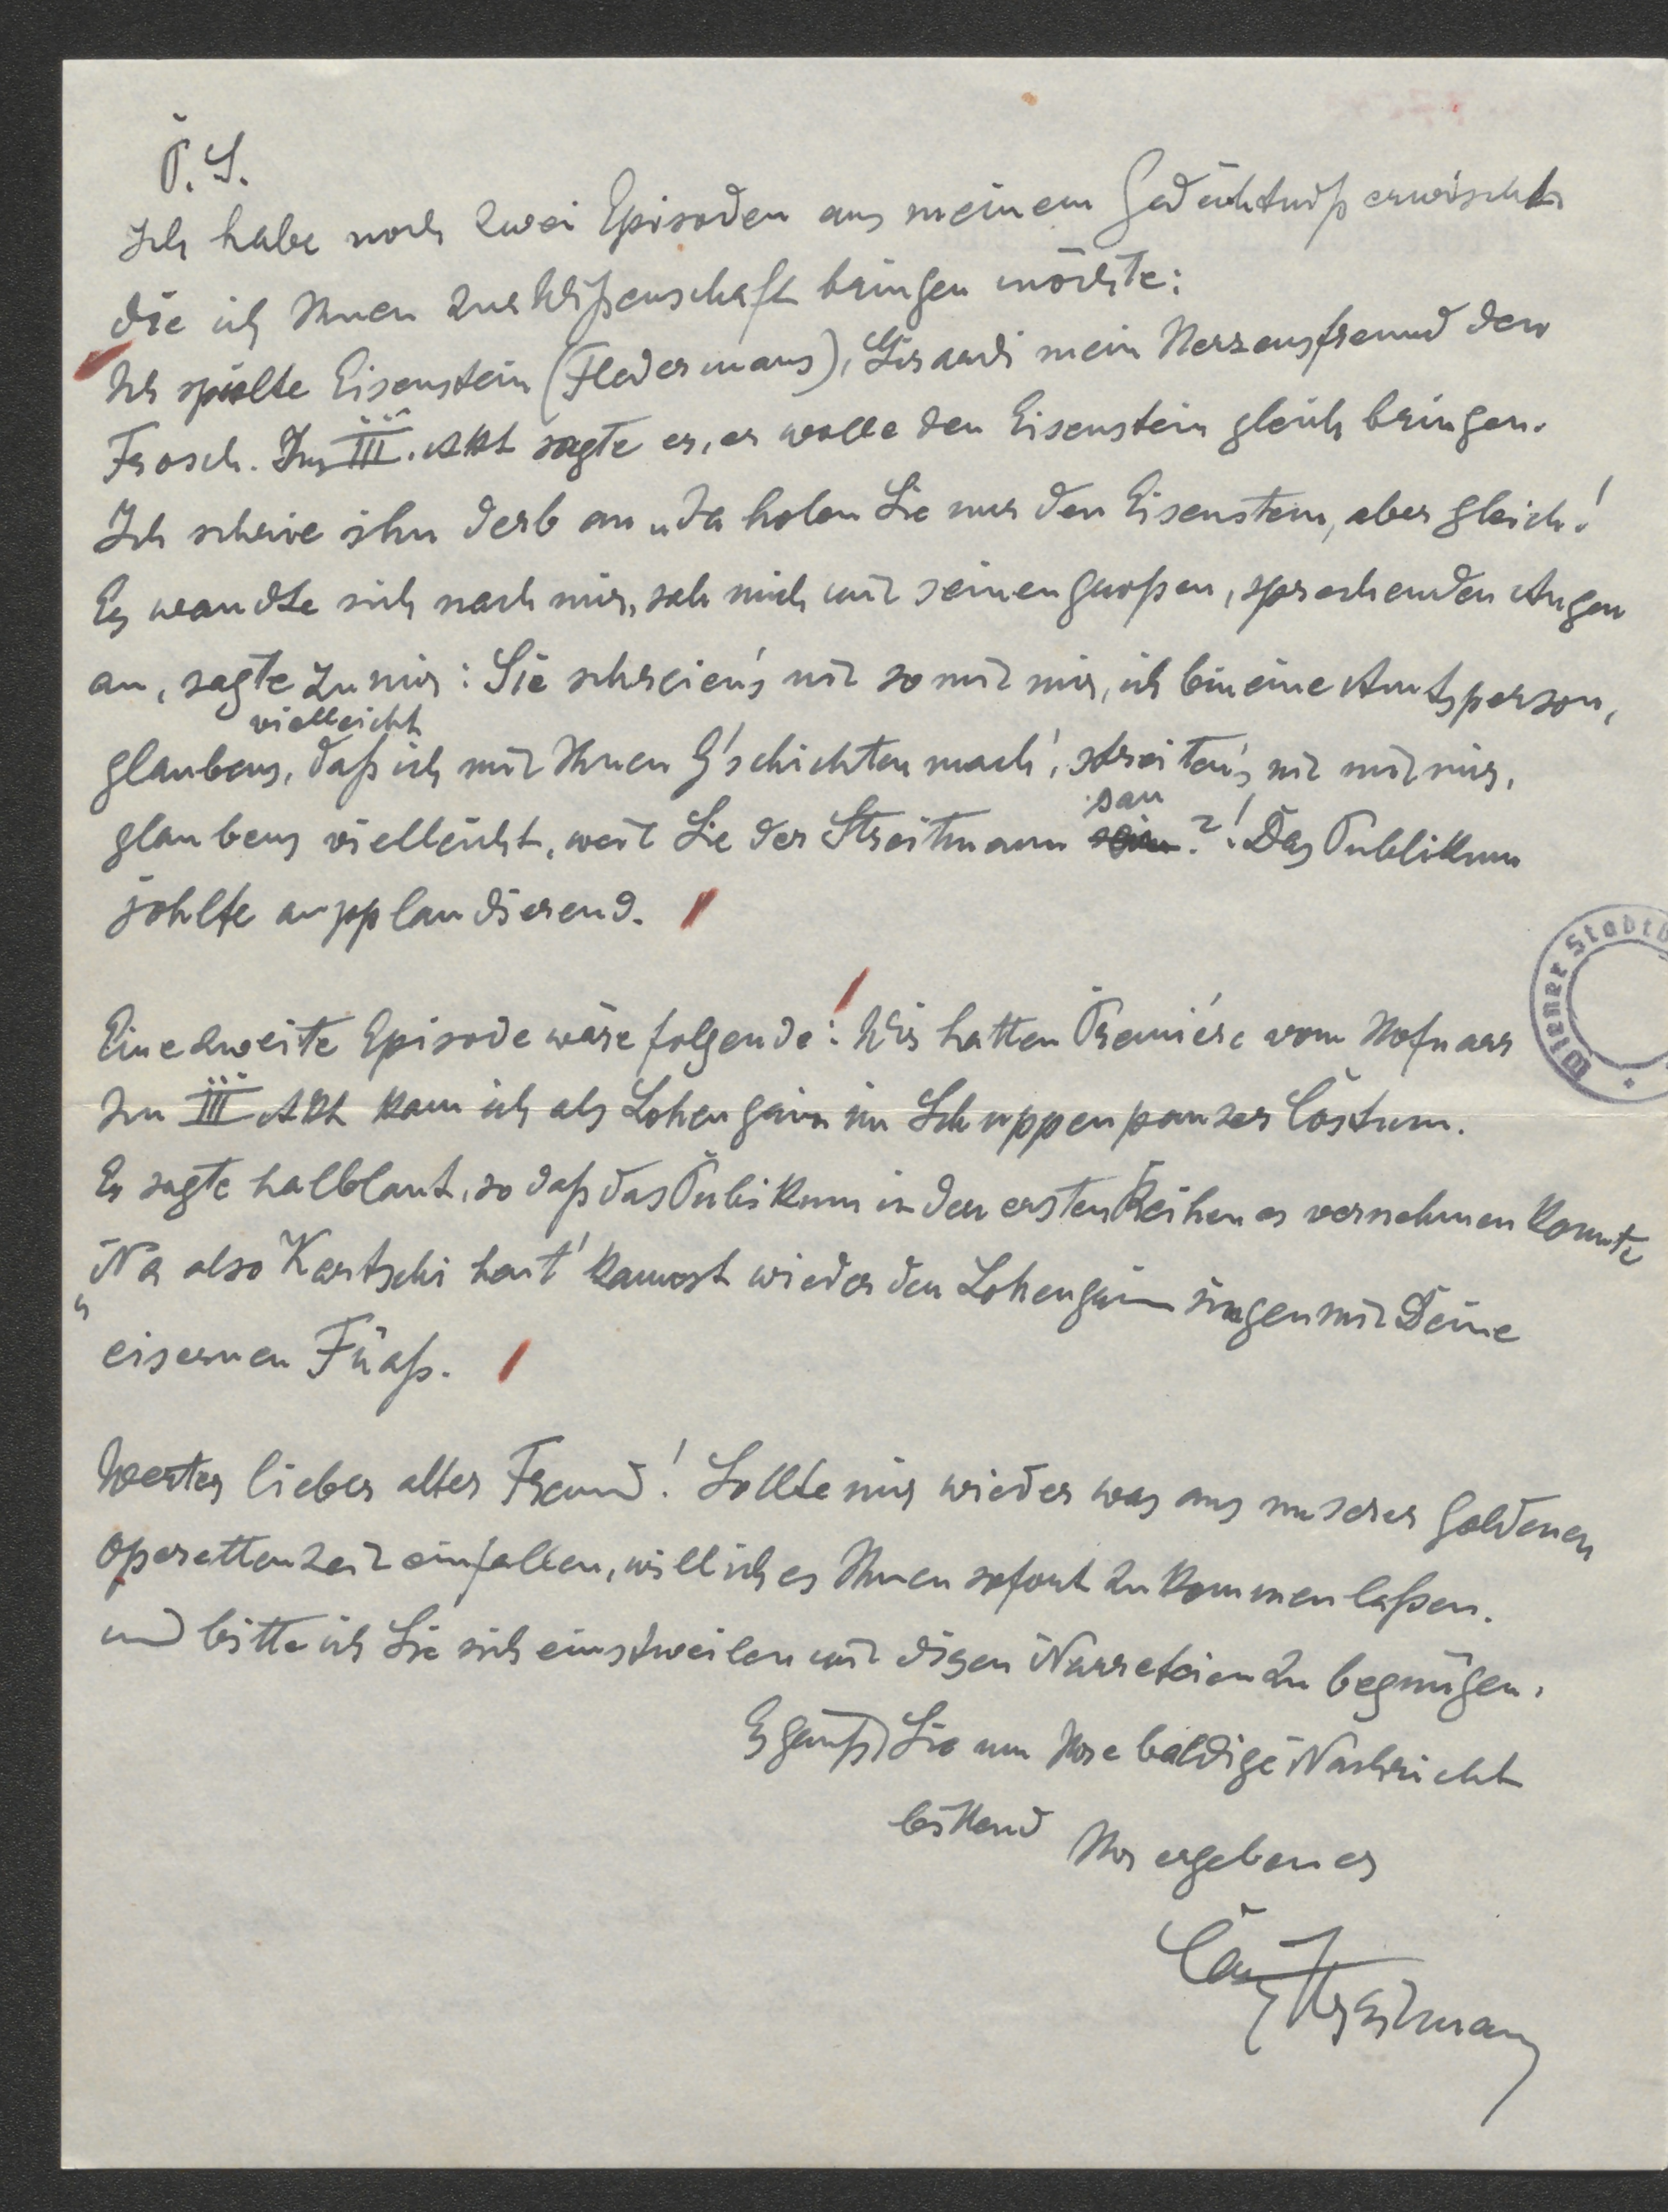 P.S.
Ich habe noch zwei Episoden aus meinem Gedächtniß erwischt
die ich Ihnen zur Wißenschaft bringen möchte:
Ich spielte Eisenstein (Fledermaus), Girardi mein Herzensfreund den
Frosch. Im III. Akt sagte er, er wolle den Eisenstein gleich bringen.
Ich schrie ihn derb an „da holen Sie nur den Eisenstein, aber gleich!
Er wandte sich nach mir, sah mich mit seinen großen, sprechenden Augen
an, sagte zu mir: Sie schreien's nit so mit mir, ich bin eine Amtsperson,
vielleicht
glaubens, daß ich mit Ihnen G'schichten mach', streiten's nit mit mir,
san
glaubens vielleicht, weil Sie der Streitmann sein?! Das Publikum
johlte applaudierend.
Eine zweite Episode wäre folgende: Wir hatten Premiére vom Hofnarr
Im III Akt kam ich als Lohengrin im Schuppenpanzer Costum.
Er sagte halblaut, so daß das Publikum in den ersten Reihen es vernehmen konnte
„Na also Kartschi hart' kannst wieder den Lohengrin singen mit Deine
eisernen Füaß.
Werter lieber alter Freund! Sollte mir wieder was aus unserer Goldenen
Operettenzeit einfallen, will ich es Ihnen sofort zukommen laßen.
und bitte ich Sie sich einstweilen mit disen Narreteien zu begnügen.
Es grüßt Sie um Ihre baldige Nachricht
bittend Ihr ergebener
Carl Streitmann
Wiener Stadtb